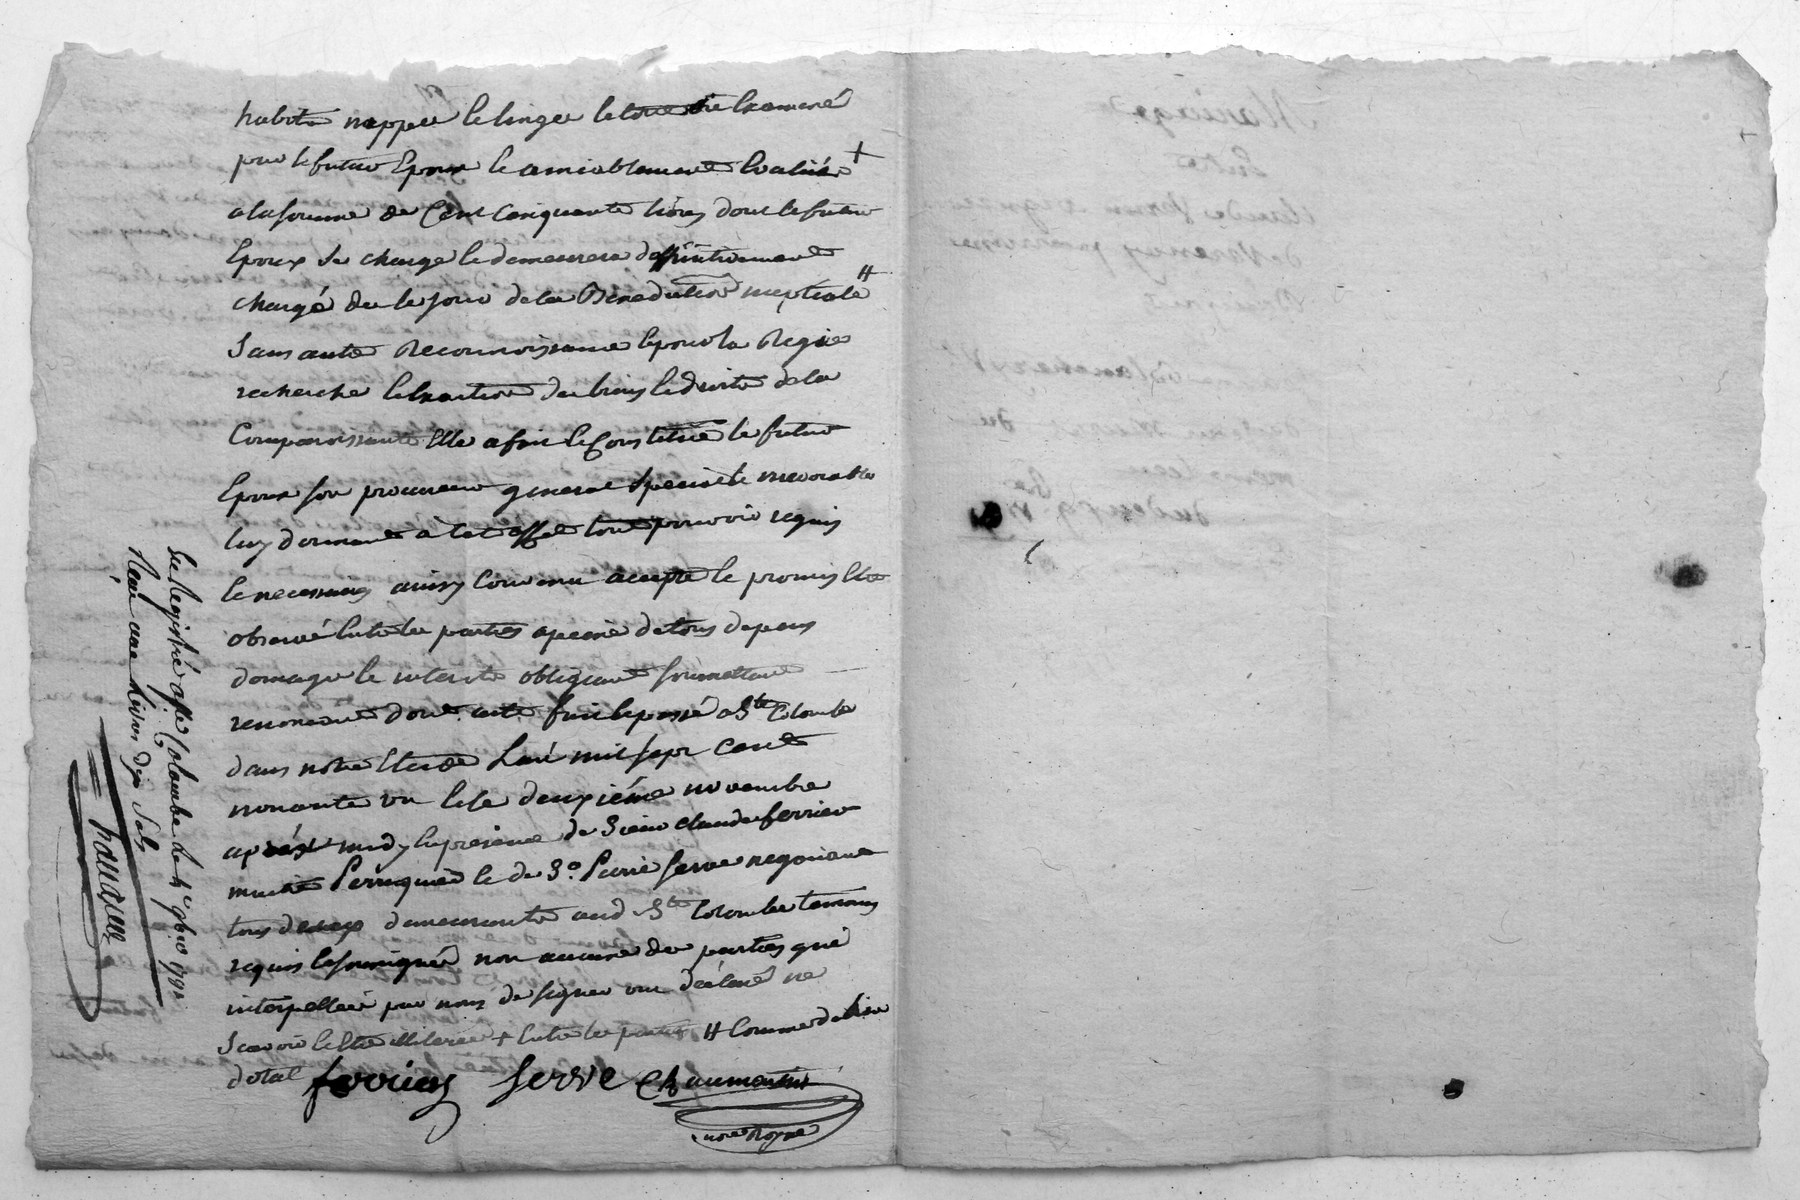 habits nappes le linges le tout vû Examiné
par le futur Epoux le amiablement Evalués +
a la somme de Cent Cinquante livres dont le futur
Epoux se charge le demeurera deffinitivement
chargé des le jour de la Benediction nuptiale #
sans autre Reconnoissance le pour la Regie
recherche le Exaction des biens le droits de la
Comparoissante Elle a fait le Constitué le futur
Epoux son procureur general special le irrevocable
luy donnant à cet effet tout pouvoir requis
le necessaires ainsy Convenu accepté le promis Etre
observé Entre les parties a peine de tous depens
domages le interets obligeant soumettant
renoncant dont acte fait le passé a Ste Colombe
dans notre Etude L'an mil sept Cent
nonante un le le deuxiéme novembre
aprés midy En presence de Sieur claude ferrier
maitre Perruquier le de Sr. Pierre Serve negociant
tous deux demeurants aud Ste Colombe temoins
requis le soussignés non aucune des parties qui
interpellées par nous de signer ont déclaré ne
Scavoir le Etre illiterées + Entre les parties # Comme de bien
dotal ferrier Serve Chaumartin
nore Royal
Enregistré a Ste Colombe le 4e 9bre 1791
Reçu une livre dix Sols